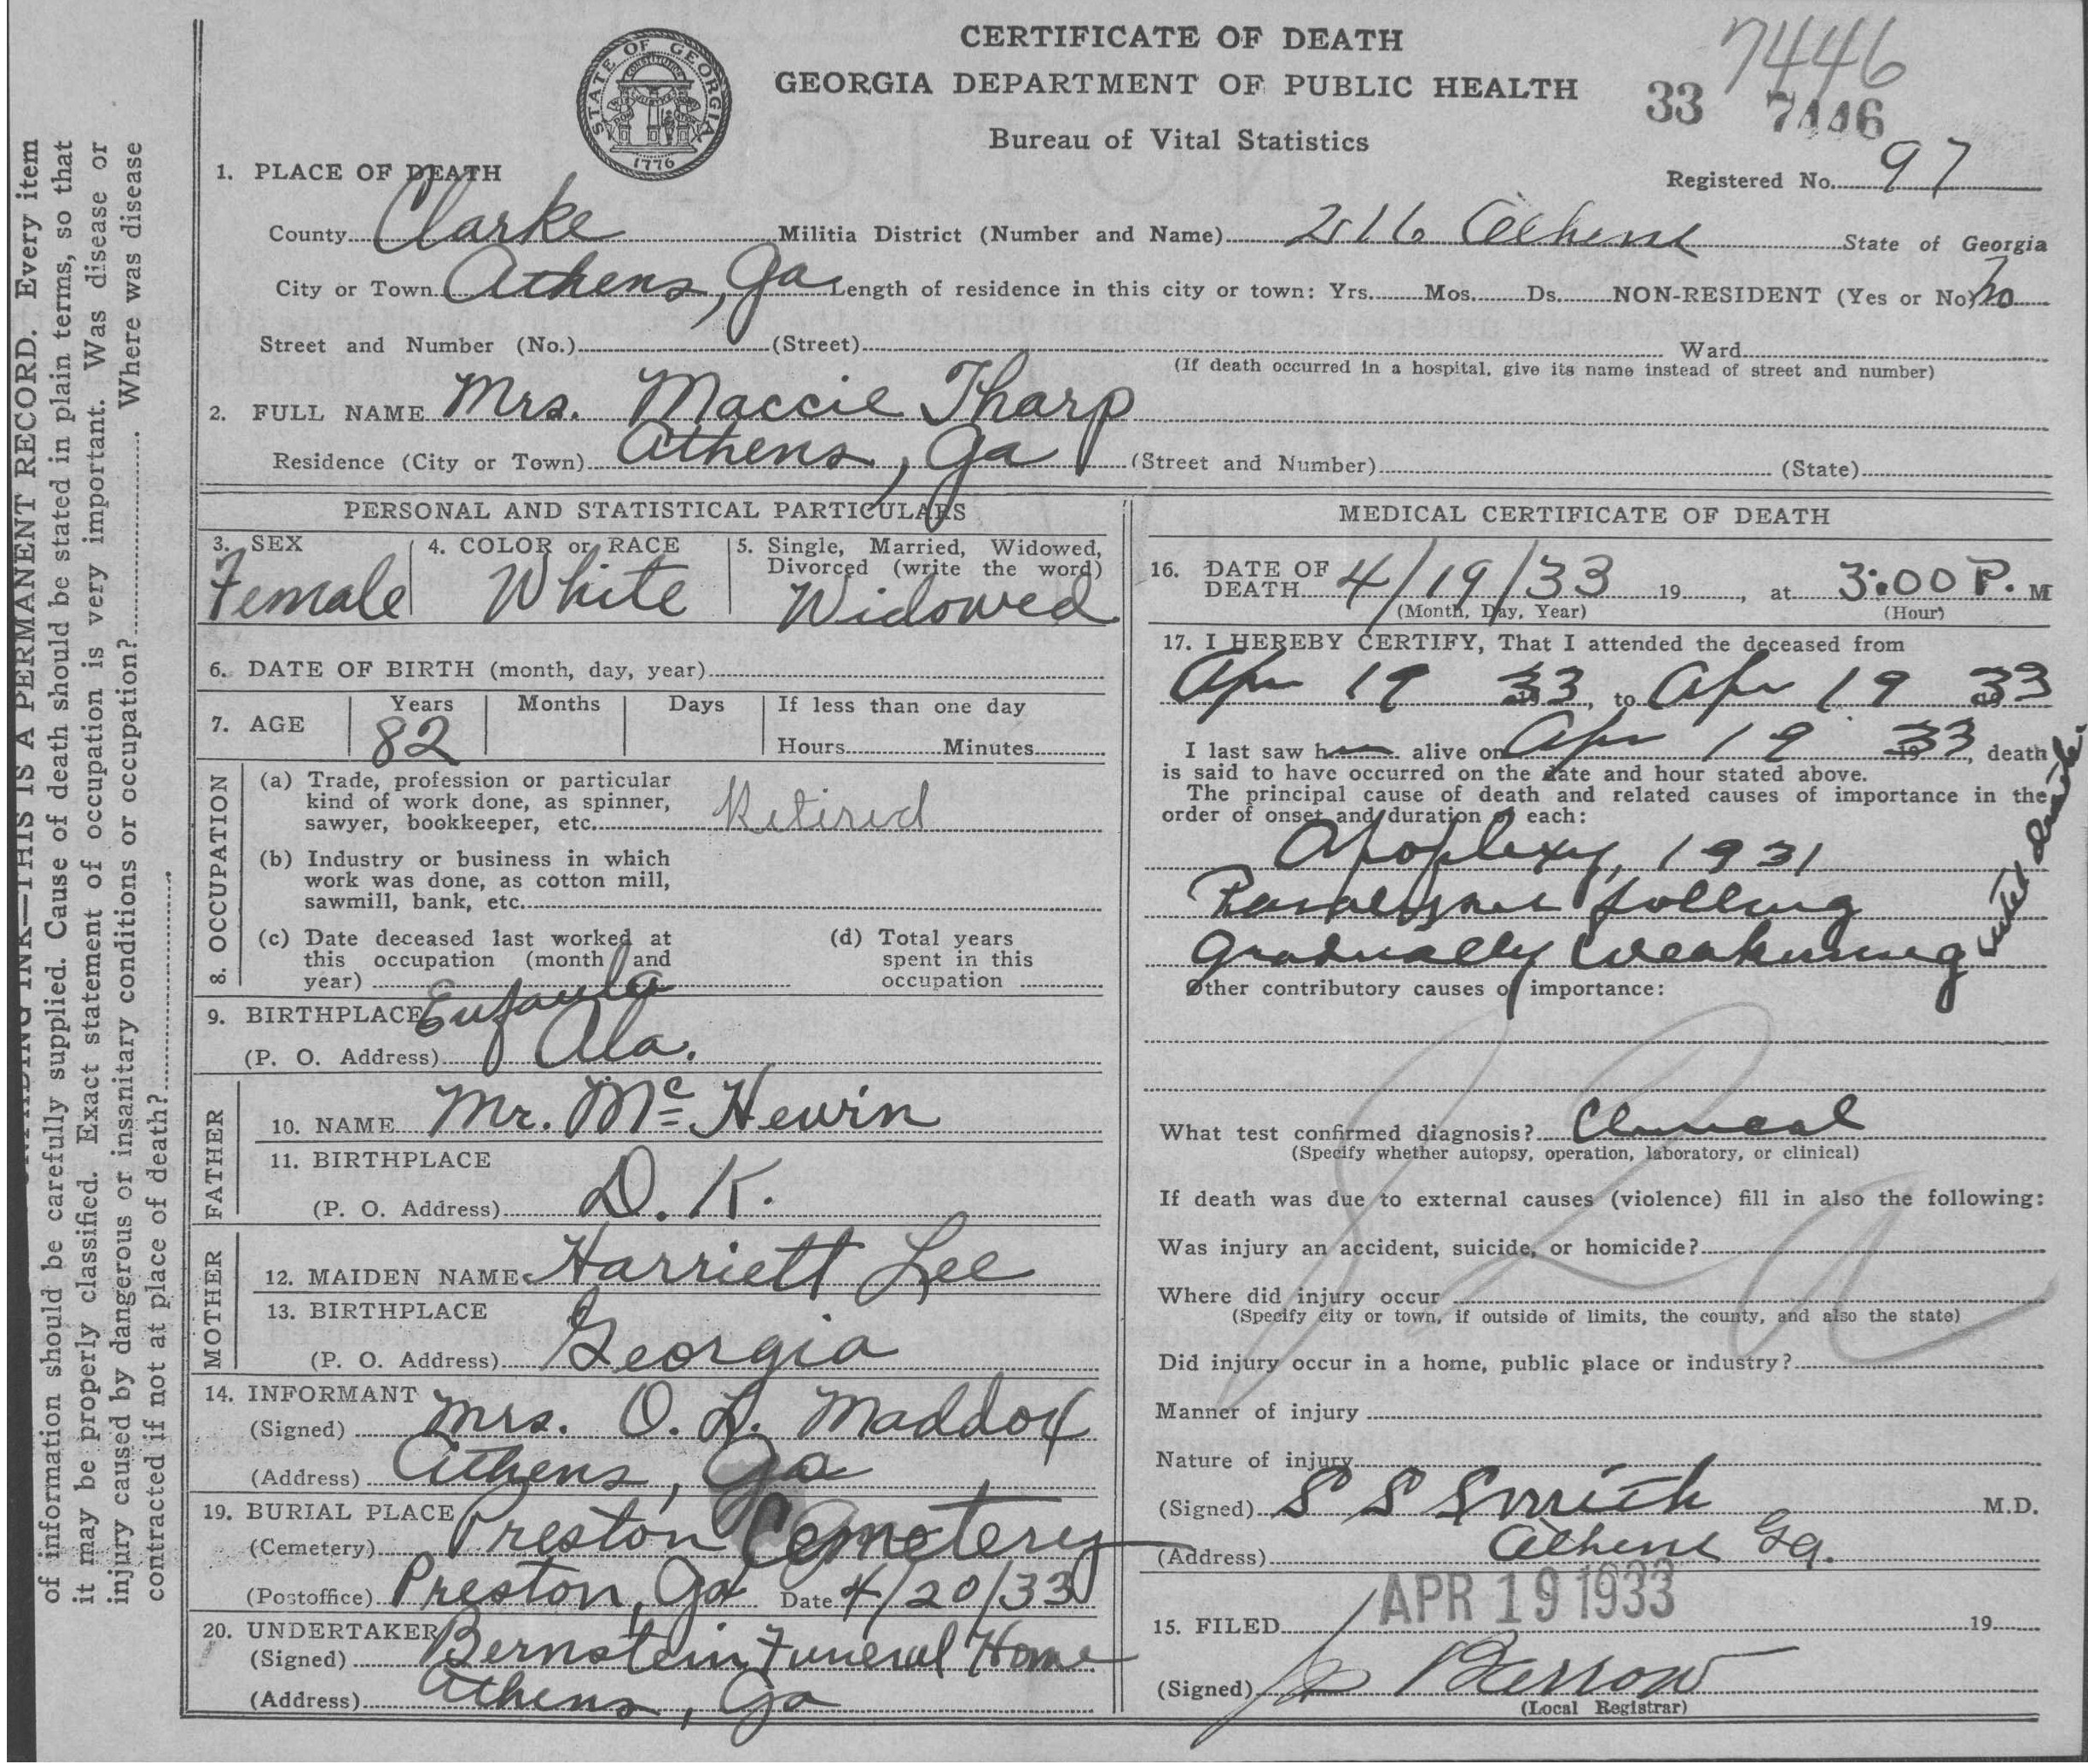 CERTIFICATE OF DEATH
GEORGIA DEPARTMENT OF PUBLIC HEALTH
Bureau of Vital Statistics
STATE OF GEORGIA
CONSTITUTION
1776
7446
33 7446
Registered No. 97
1. PLACE OF DEATH
County Clarke Militia District (Number and Name) 216 Athens State of Georgia
City or Town Athens, Ga Length of residence in this city or town: Yrs. Mos. Ds. NON-RESIDENT (Yes or No) No
Street and Number (No.) (Street) Ward
(If death occurred in a hospital, give its name instead of street and number)
2. FULL NAME Mrs. Maccie Tharp
Residence (City or Town) Athens, Ga (Street and Number) (State)
PERSONAL AND STATISTICAL PARTICULARS
3. SEX Female
4. COLOR or RACE White
5. Single, Married, Widowed, Divorced (write the word) Widowed
6. DATE OF BIRTH (month, day, year)
7. AGE Years 82 Months Days If less than one day
Hours Minutes
8. OCCUPATION
(a) Trade, profession or particular
kind of work done, as spinner,
sawyer, bookkeeper, etc. Retired
(b) Industry or business in which
work was done, as cotton mill,
sawmill, bank, etc.
(c) Date deceased last worked at
this occupation (month and
year)
(d) Total years
spent in this
occupation
9. BIRTHPLACE Eufaula
(P. O. Address) Ala.
FATHER
10. NAME Mr. Mc Hewin
11. BIRTHPLACE
(P. O. Address) D. K.
MOTHER
12. MAIDEN NAME Harriett Lee
13. BIRTHPLACE
(P. O. Address) Georgia
14. INFORMANT
(Signed) Mrs. O. L. Maddox
(Address) Athens, Ga
19. BURIAL PLACE
(Cemetery) Preston Cemetery
(Postoffice) Preston, Ga Date 4/20/33
20. UNDERTAKER
(Signed) Bernstein Funeral Home
(Address) Athens, Ga
MEDICAL CERTIFICATE OF DEATH
16. DATE OF
DEATH 4/19/33 19 , at 3:00 P. M
(Month, Day, Year) (Hour)
17. I HEREBY CERTIFY, That I attended the deceased from
Apr 19 33, to Apr 19 33
I last saw h alive on Apr 19 33, death
is said to have occurred on the date and hour stated above.
The principal cause of death and related causes of importance in the
order of onset and duration of each:
Apoplexy, 1931
gradually weakening until
Other contributory causes of importance:
What test confirmed diagnosis? Clinical
(Specify whether autopsy, operation, laboratory, or clinical)
If death was due to external causes (violence) fill in also the following:
Was injury an accident, suicide, or homicide?
Where did injury occur
(Specify city or town, if outside of limits, the county, and also the state)
Did injury occur in a home, public place or industry?
Manner of injury
Nature of injury
(Signed) S S Smith M.D.
(Address) Athens Ga.
15. FILED APR 19 1933 19
(Signed) Barrow
(Local Registrar)
INK—THIS IS A PERMANENT RECORD. Every item
of information should be carefully supplied. Cause of death should be stated in plain terms, so that
it may be properly classified. Exact statement of occupation is very important. Was disease or
injury caused by dangerous or insanitary conditions or occupation? Where was disease
contracted if not at place of death?